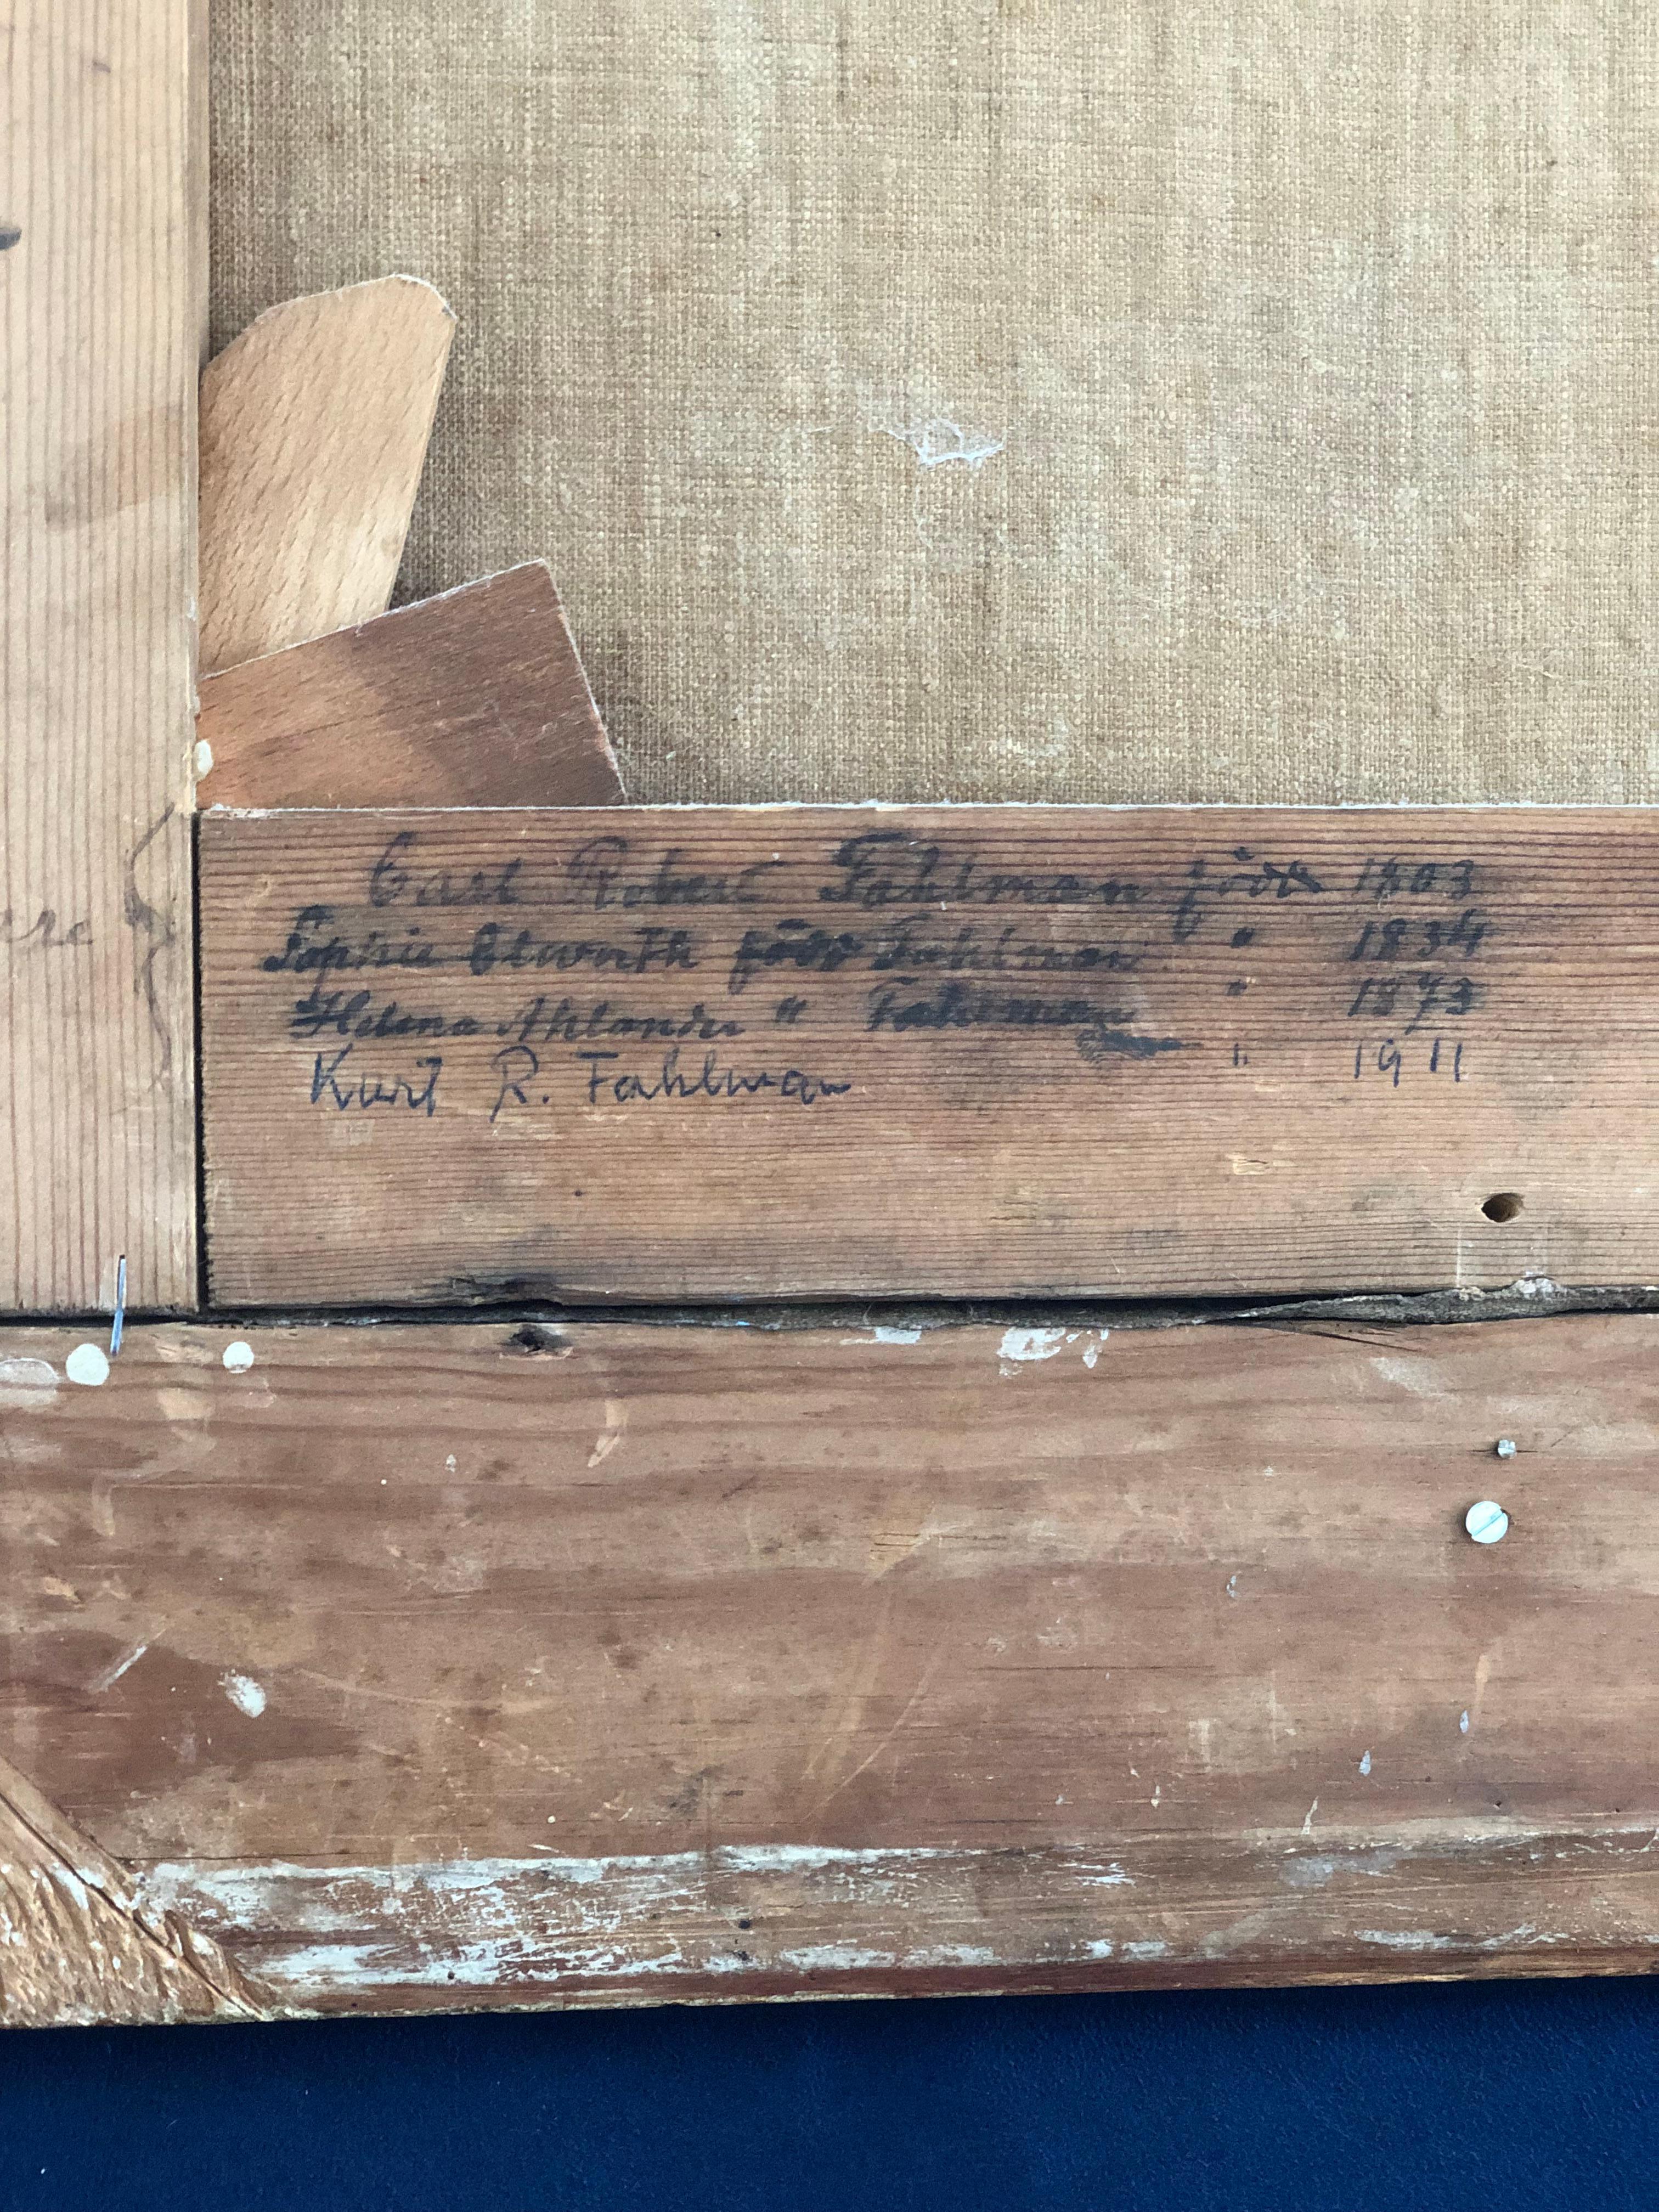 Carl Robert Fahlman född 1803
Sophie Elwurth född Fahlman " 1834
Helena Ahlander " Fahlman " 1873
Kurt R. Fahlman " 1911